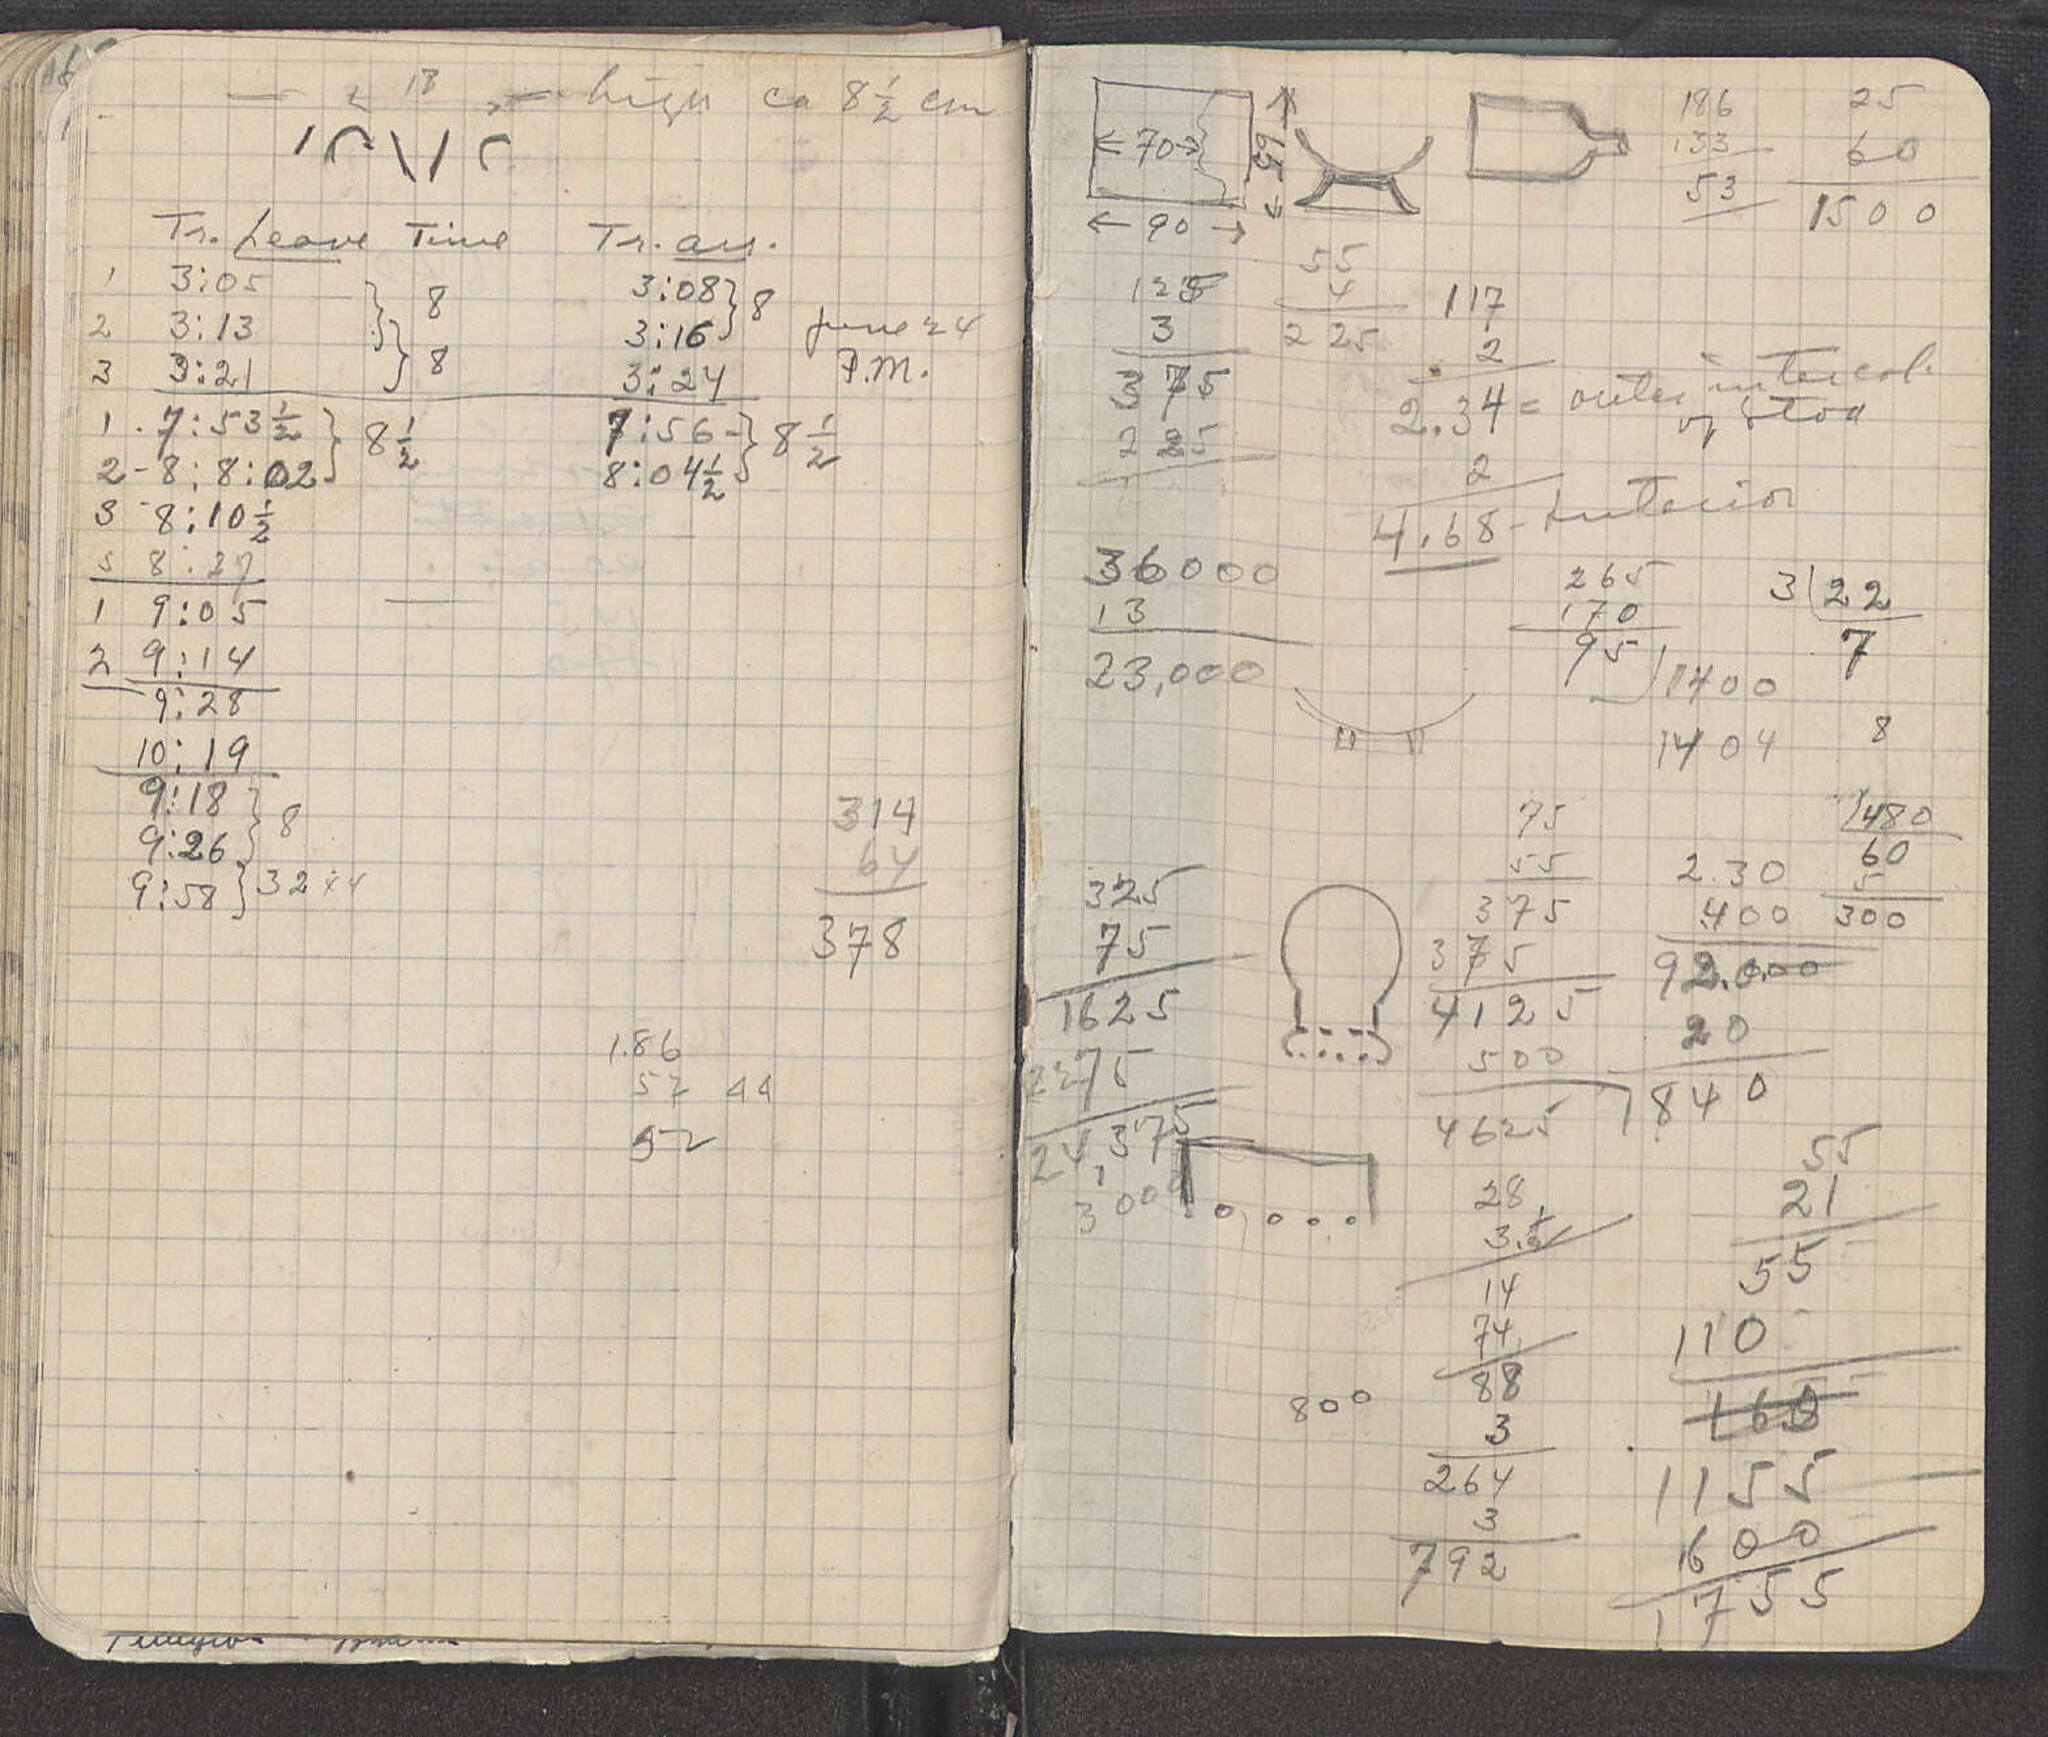 high ca 8 1/2 cm
Tr. Leave Time Tr. arr.
1 3:05 3:08
2 3:13 8 3:16 8 June 24
3 3:21 8 3:24 P.M.
1. 7:53 1/2 7:56-
2- 8:8:02 8 1/2 8:04 1/2 8 1/2
3 - 8:10 1/2
5 8:27
1 9:05 —
2 9:14
9:28
10:19
9:18
9:26 8
9:58 32
314
64
378
1.86
52 44
52
←70→ 65
← 90 →
186
133
53
25
60
1500
125
3
375
225
55
4
225
117
2
2.34 = outer intercol.
of stoa
2
4.68 - Interior
36000
13
23,000
265
170
95
1400
1404
3 22
7
8
480
60
5
300
75
55
375
375
4125
500
4625
2.30
400
92.000
20
1840
325
75
1625
2275
24,375
3000
28
3.
14
74
88
3
264
3
792
800
55
21
55
110
1155
600
1755